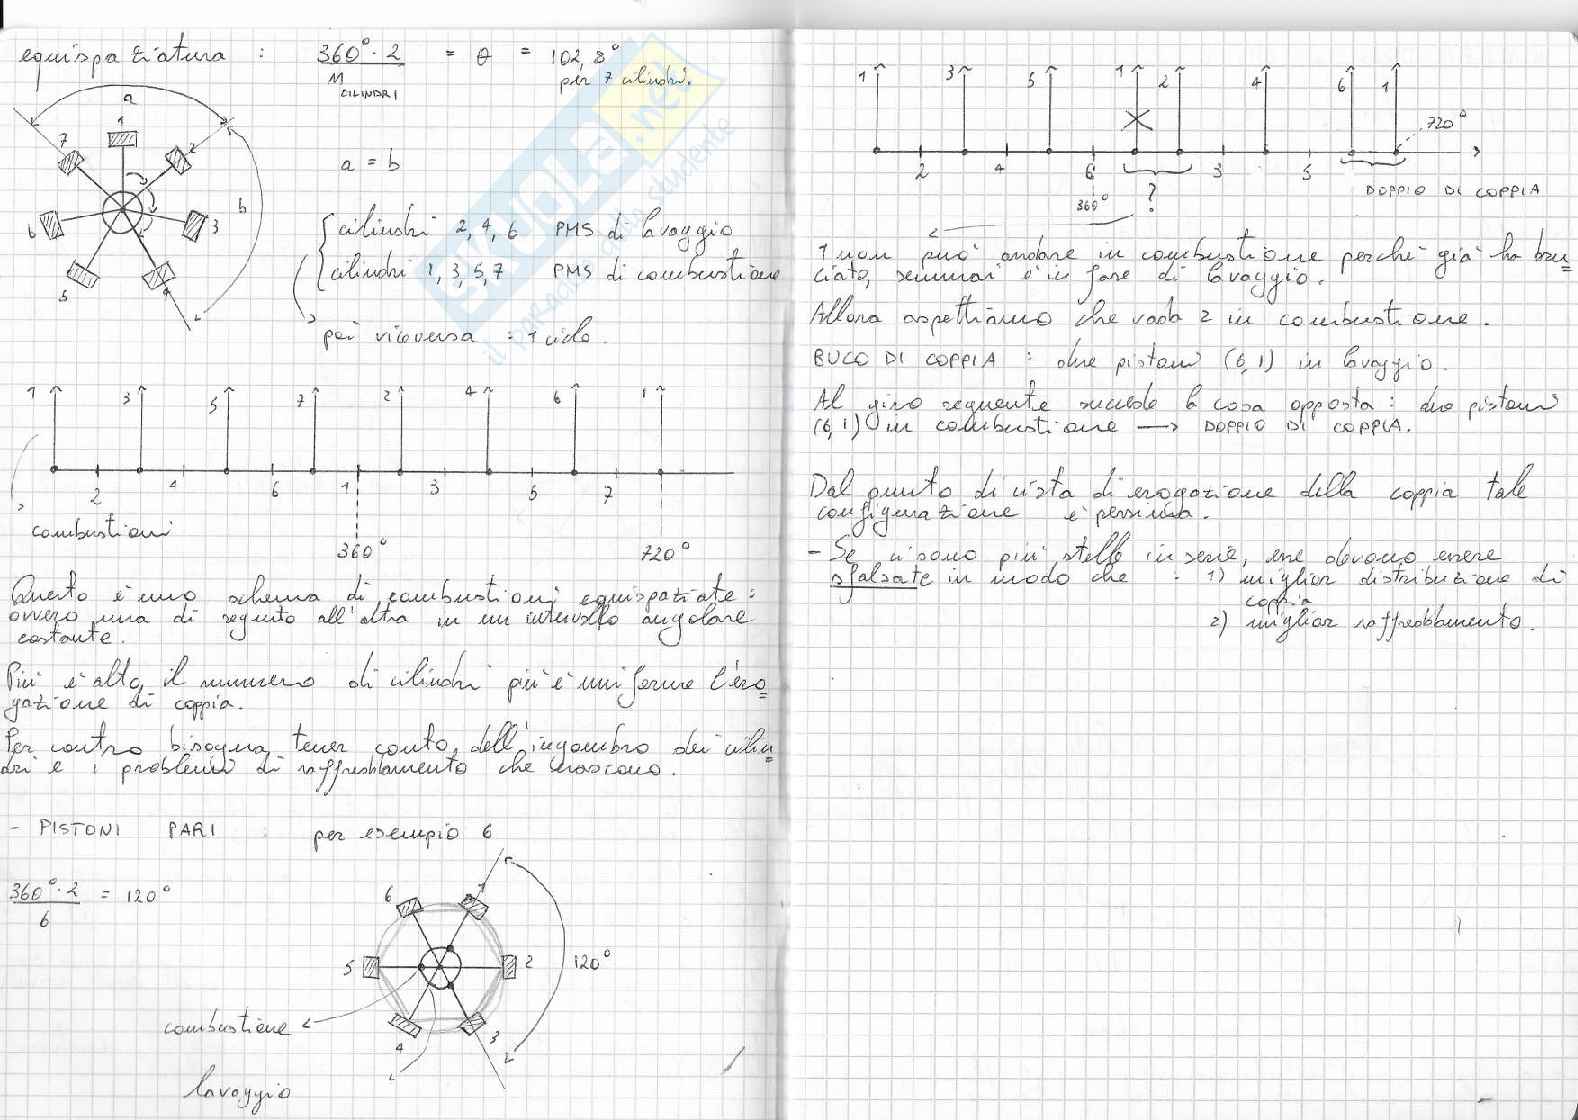 equispaziatura : 360° · 2 / M CILINDRI = θ = 102,8° per 7 cilindri.
a
1
7
2
a = b
b
6
3
5
4
cilindri 2, 4, 6 PMS di lavaggio
cilindri 1, 3, 5, 7 PMS di combustione
poi viceversa = 1 ciclo.
1 3 5 7 2 4 6 1
2 4 6 1 3 5 7
combustioni
360° 720°
Questo è uno schema di combustioni equispaziate :
ovvero una di seguito all'altra in un intervallo angolare
costante.
Più è alto il numero di cilindri più è uniforme l'ero=
gazione di coppia.
Per contro bisogna tener conto dell'ingombro dei cilin=
dri e i problemi di raffreddamento che nascono.
- PISTONI PARI : per esempio 6
360° · 2 / 6 = 120°
6 1
5 2 120°
4 3
combustione
lavaggio
1 3 5 1 2 4 6 1
720°
2 4 6 3 5
360° ? DOPPIO DI COPPIA
1 non può andare in combustione perchè già ha bru=
ciato, semmai è in fase di lavaggio.
Allora aspettiamo che vada 2 in combustione.
BUCO DI COPPIA : due pistoni (6,1) in lavaggio.
Al giro seguente succede la cosa opposta : due pistoni
(6,1) in combustione → DOPPIO DI COPPIA.
Dal punto di vista di erogazione della coppia tale
configurazione è pessima.
- Se ci sono più stelle in serie, esse devono essere
sfalsate in modo che : 1) miglior distribuzione di
coppia
2) miglior raffreddamento.
SKUOLA.net
il paradiso dello studente